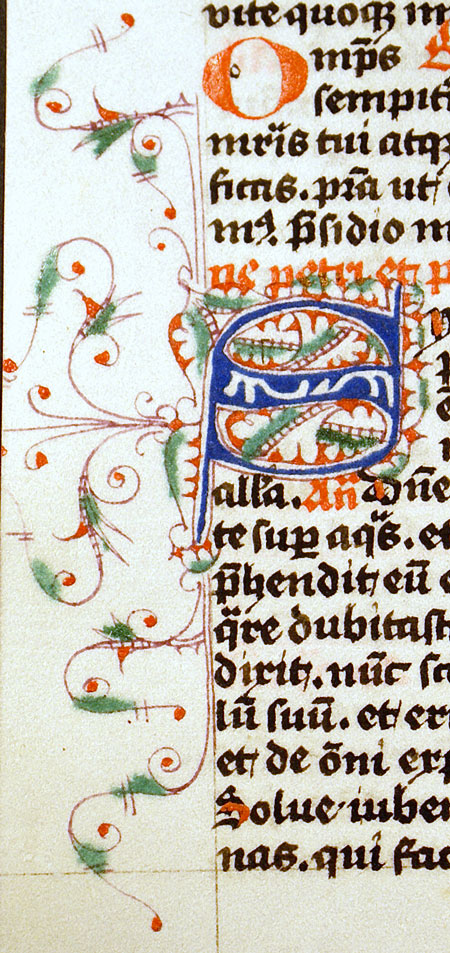 vite quoqꝫ
Omp̄s
sempit
mr̄is tui atqꝫ
ficiis. pr̄a ut
p̄sidio
ne petri et p
alla. Añ Dn̄e
te sup aq̄s. et
p̄hendit eū
q̄re dubitast
dixit. nūc
lū suū. et
et de ōni exp
Solue iuben
nas. qui fac